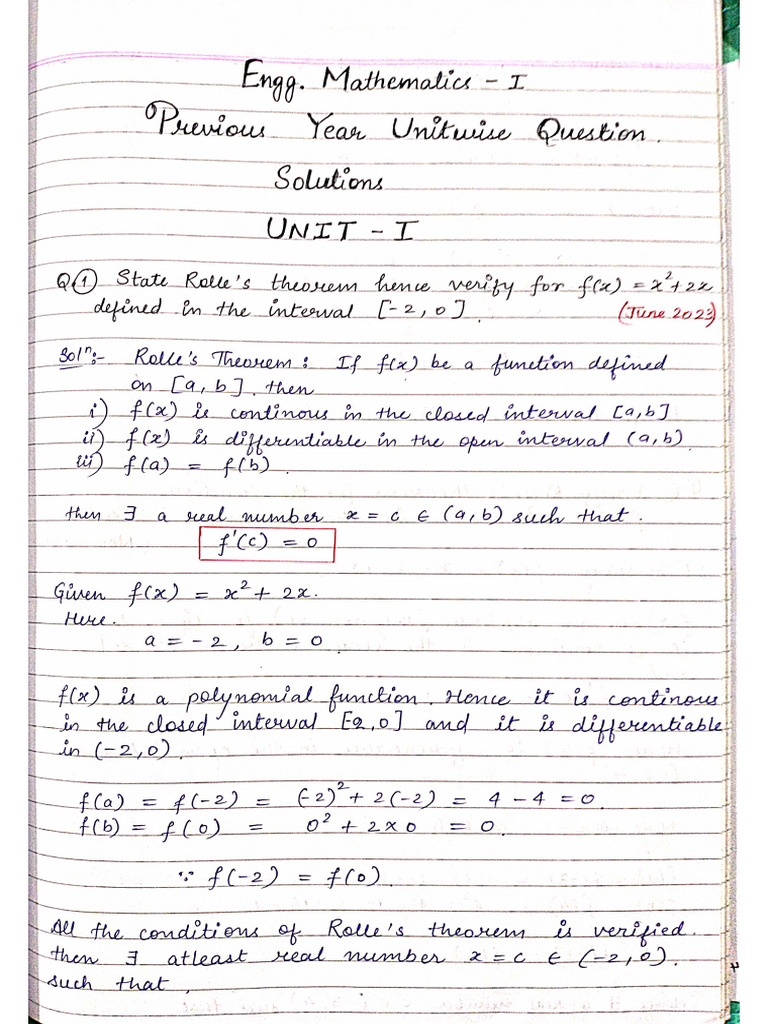 Engg. Mathematics - I
Previous Year Unitwise Question.
Solutions
UNIT - I
Q.① State Rolle's theorem hence verify for f(x) = x² + 2x
defined in the interval [-2, 0]. (June 2023)
Solⁿ:- Rolle's Theorem: If f(x) be a function defined
on [a, b], then
i) f(x) is continous in the closed interval [a, b]
ii) f(x) is differentiable in the open interval (a, b)
iii) f(a) = f(b).
then ∃ a real number x = c ∈ (a, b) such that.
f'(c) = 0
Given f(x) = x² + 2x.
Here.
a = -2, b = 0.
f(x) is a polynomial function. Hence it is continous
in the closed interval [2, 0] and it is differentiable
in (-2, 0).
f(a) = f(-2) = (-2)² + 2(-2) = 4 - 4 = 0.
f(b) = f(0) = 0² + 2 x 0 = 0.
∵ f(-2) = f(0).
All the conditions of Rolle's theorem is verified.
then ∃ atleast real number x = c ∈ (-2, 0).
such that,